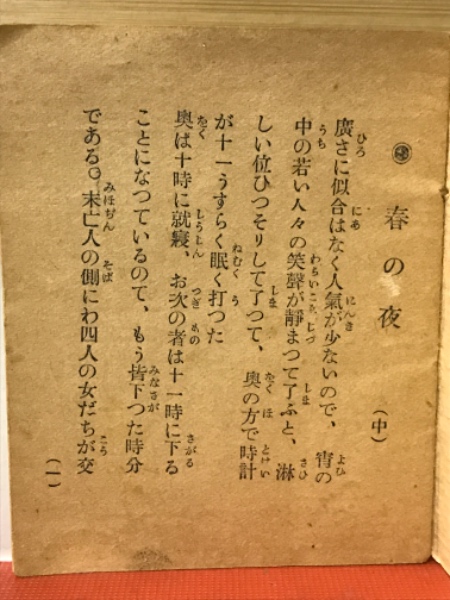 春の夜
(中)
廣さに似合はなく人氣が少ないので、宵の
中の若い人々の笑聲が靜まつて了ふと、淋
しい位ひつそりして了つて、奥の方で時計
が十一うすらく眠く打つた
奥は十時に就寢、お次の者は十一時に下る
ことになつているので、もう皆下つた時分
である。末亡人の側にわ四人の女だちが交
(一)